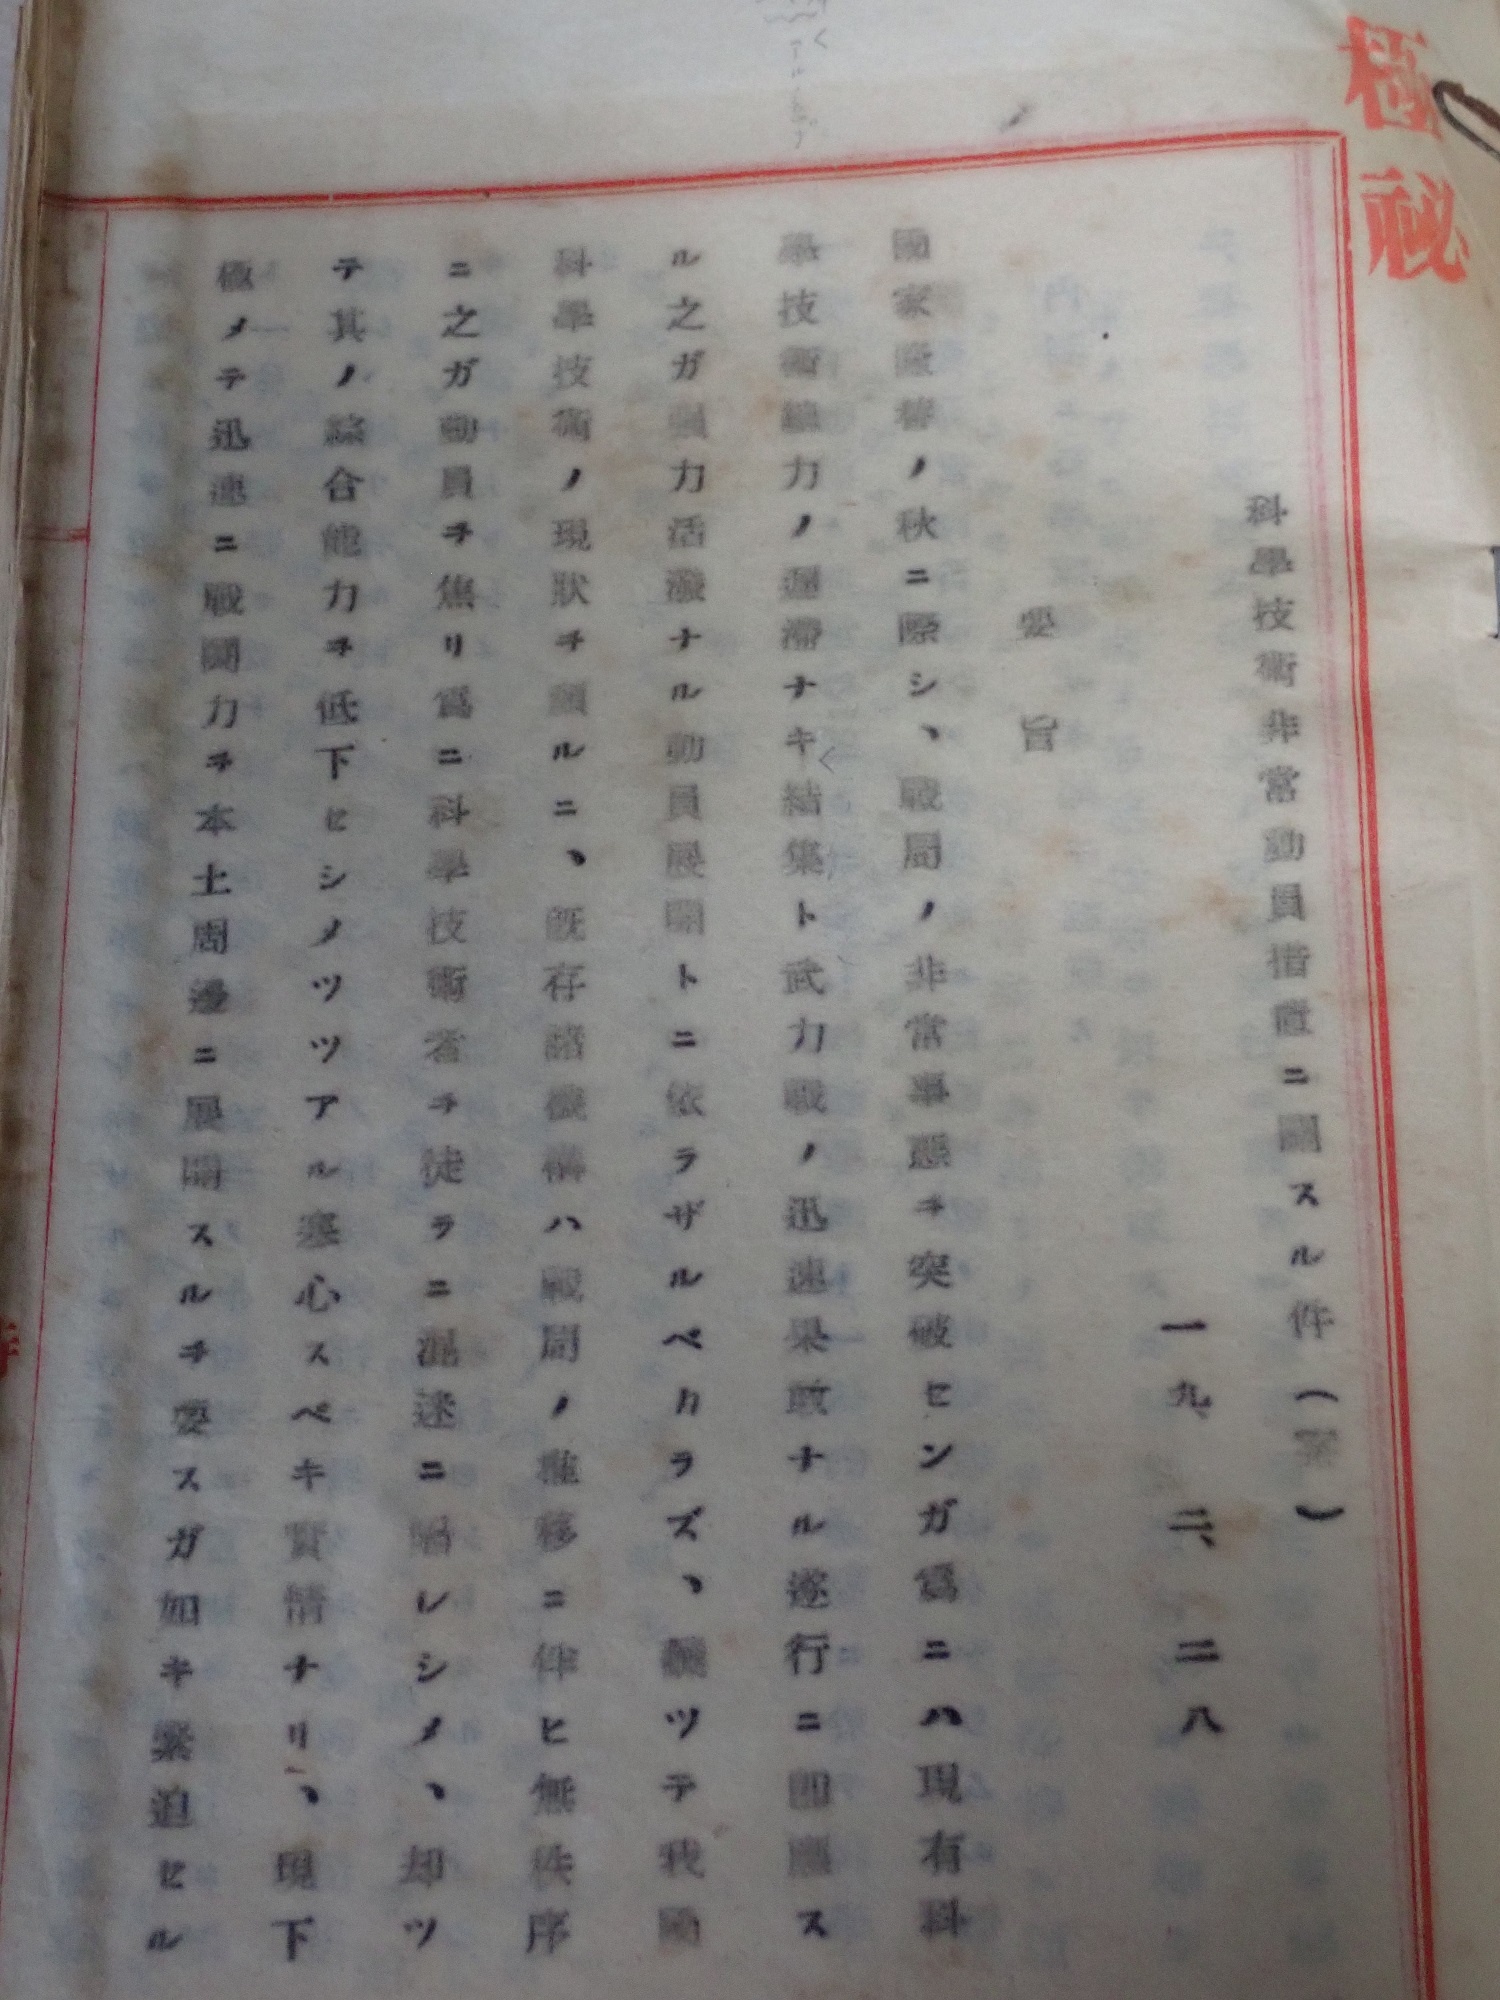 極秘
科學技術非常動員措置ニ關スル件(案)
一九、二、二八
要旨
國家厳春ノ秋ニ際シ、戰局ノ非常事態ヲ突破センガ爲ニハ現有科
學技術總力ノ遲滯ナキ結集ト武力戰ノ迅速果敢ナル遂行ニ即應ス
ル之ガ强力活潑ナル動員展開トニ依ラザルベカラズ、飜ツテ我國
科學技術ノ現狀ヲ顧ルニ、既存諸機構ハ戰局ノ推移ニ伴ヒ無秩序
ニ之ガ動員ヲ焦リ爲ニ科學技術者ヲ徒ラニ混迷ニ陷レシメ、却ツ
テ其ノ綜合能力ヲ低下セシメツツアル寒心スベキ實情ナリ、現下
極メテ迅速ニ戰鬪力ヲ本土周邊ニ展開スルヲ要スガ如キ緊迫セル